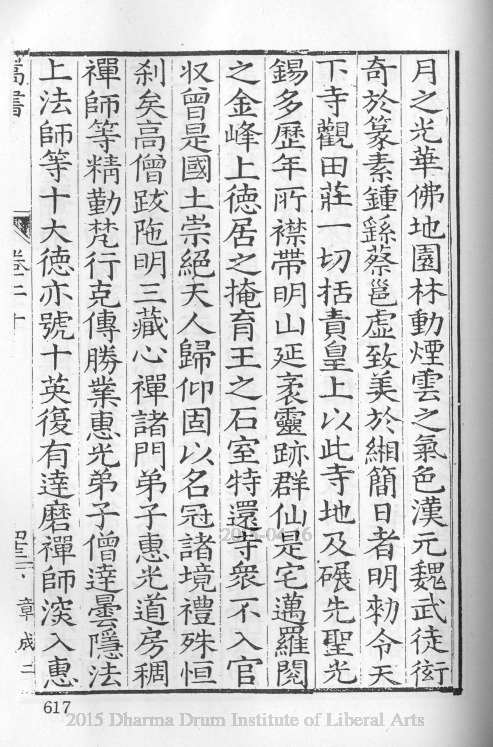 月之光華佛地園林動煙雲之氣色漢元魏武徒衒
奇於篆素鍾繇蔡邕虛致美於緗簡日者明勅令天
下寺觀田莊一切括責皇上以此寺地及碾先聖光
錫多歷年所襟帶明山延袤靈跡群仙是宅邁羅閱
之金峰上德居之掩育王之石室特還寺衆不入官
收曾是國土崇絕天人歸仰固以名冠諸境禮殊恒
刹矣高僧跋陁明三藏心禪諸門弟子惠光道房稠
禪師等精勤梵行克傳勝業惠光弟子僧達曇隱法
上法師等十大德亦號十英復有達磨禪師深入惠
嵩書
卷二十
章成二
617
2015 Dharma Drum Institute of Liberal Arts